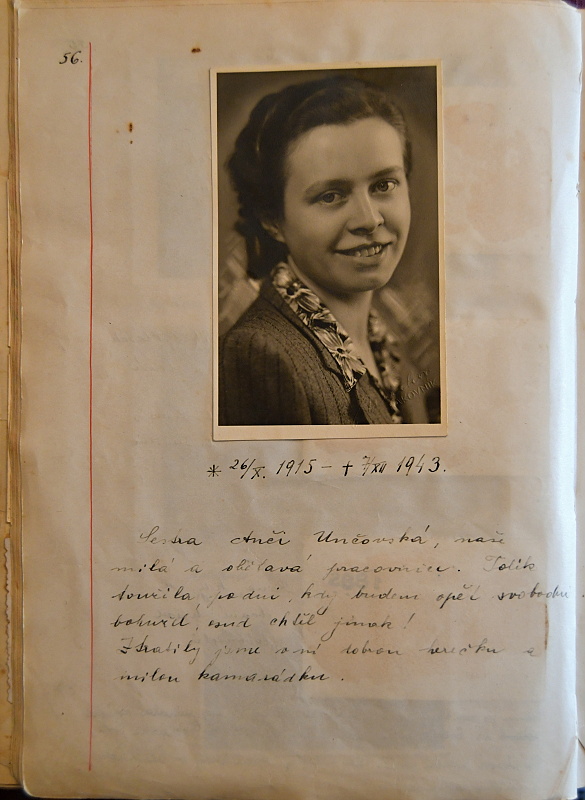 56.
* 26/X. 1915 - + 7/XII 1943.
Sestra Anči Unčovská, naše
milá a obětavá pracovnice. Tolik
toužila, po dni, kdy budem opět svobodni
bohužel, osud chtěl jinak!
Ztratily jsme v ní dobrou herečku a
milou kamarádku.